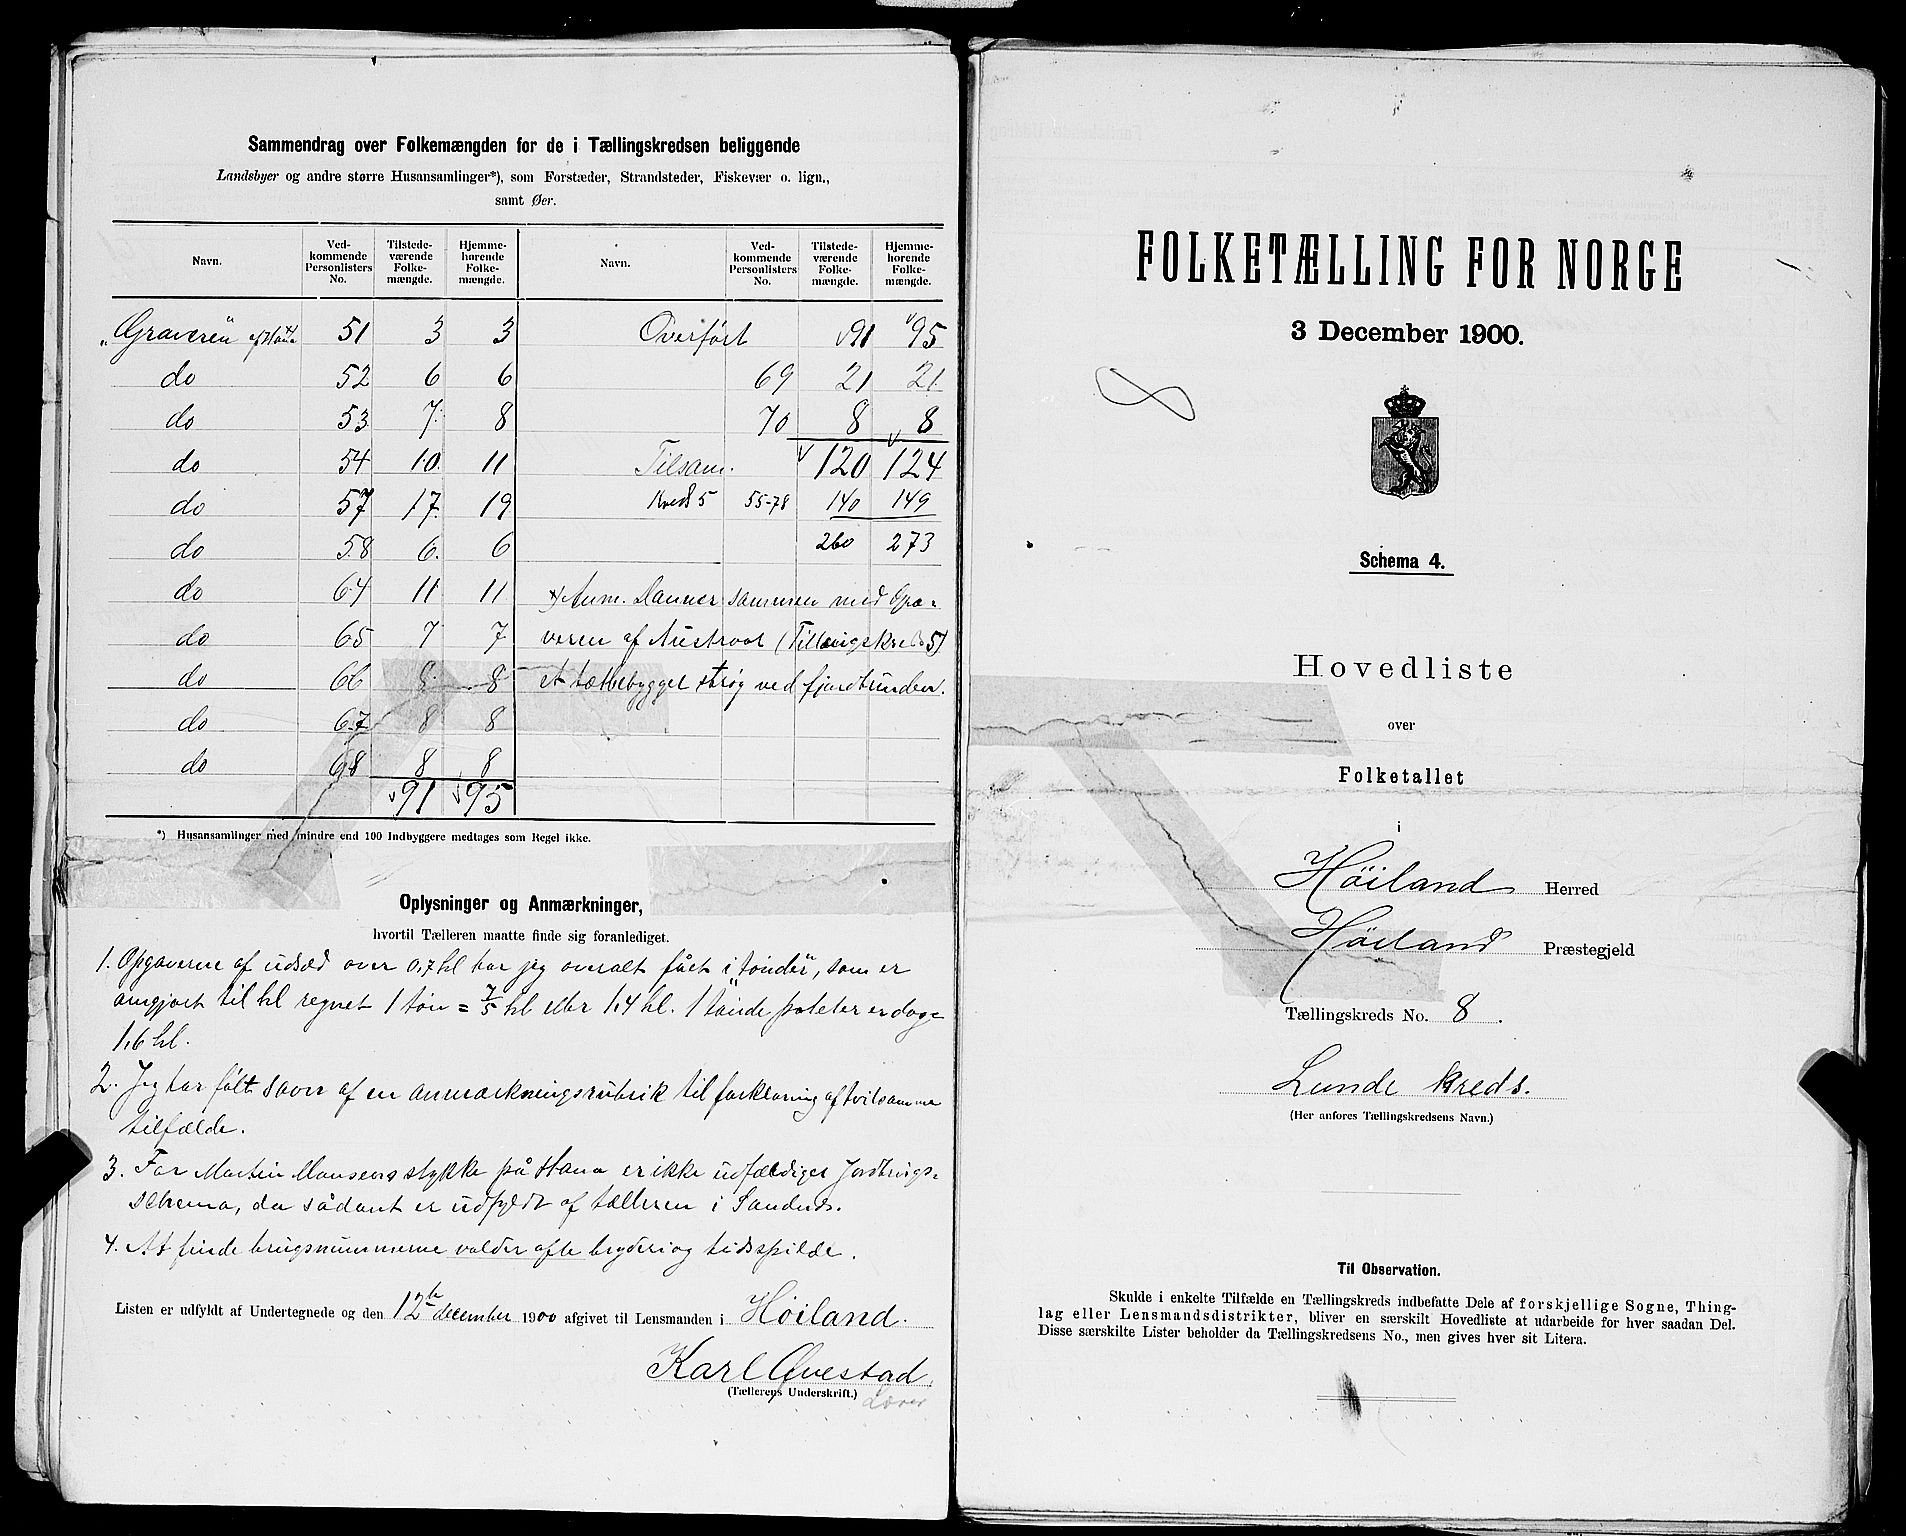 Sammendrag over Folkemængden for de i Tællingskredsen beliggende
Landsbyer og andre større Husansamlinger*), som Forstæder, Strandsteder, Fiskevær o. lign.,
samt Øer.
Navn. Ved-kommende Personlisters No. Tilstede-værende Folke-mængde. Hjemme-hørende Folke-mængde. Navn. Ved-kommende Personlisters No. Tilstede-værende Folke-mængde. Hjemme-hørende Folke-mængde.
„Graveren af Hana 51 3 3 Overført 91 95
do 52 6 6 69 21 21
do 53 7 8 70 8 8
do 54 10 11 Tilsam. 120 124
do 57 17 19 Kreds 5 55-78 140 149
do 58 6 6 260 273
do 64 11 11 x) Anm. Danner sammen med Gra-
do 65 7 7 veren af Austraat (Tellingskreds 5)
do 66 8 8 et tætbebygget strøg ved fjordbunden.
do 67 8 8
do 68 8 8
91 95
*) Husansamlinger med mindre end 100 Indbyggere medtages som Regel ikke.
Oplysninger og Anmærkninger,
hvortil Tælleren maatte finde sig foranlediget.
1. Opgaverne af udsæd over 0,7 hl har jeg overalt fået i tønder, som er
omgjort til hl regnet 1 tøn = 7/5 hl eller 1,4 hl. 1 tønde poteter er dog =
1,6 hl.
2. Jeg har følt savn af en anmærkningsrubrik til forklaring af tvilsomme
tilfælde.
3. For Martin Hansens stykke på Hana er ikke udfærdiget Jordbrugs-
schema, da sådant er udfyldt af tælleren i Sandnds.
4. At finde brugsnummerne volder ofte bryderi og tidsspilde.
Listen er udfyldt af Undertegnede og den 12te december 1900 afgivet til Lensmanden i Høiland.
Karl Øvestad
(Tællerens Underskrift.)
Lærer
FOLKETÆLLING FOR NORGE
3 December 1900.
Schema 4.
Hovedliste
over
Folketallet
i
Høiland Herred
Høiland Præstegjeld
Tællingskreds No. 8.
Lunde kreds.
(Her anføres Tællingskredsens Navn.)
Til Observation.
Skulde i enkelte Tilfælde en Tællingskreds indbefatte Dele af forskjellige Sogne, Thing-
lag eller Lensmandsdistrikter, bliver en særskilt Hovedliste at udarbeide for hver saadan Del.
Disse særskilte Lister beholder da Tællingskredsens No., men gives hver sit Litera.